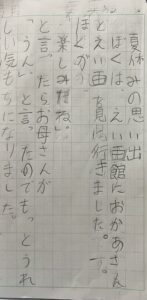 夏休みの思い出
ぼくは、えい画館におかあさん
とえい画を見に行きました。す。
ぼくが
楽しみだね。
と言ったらお母さんが
「うん」と言ったのでもっとうれ
しい気もちになりました。